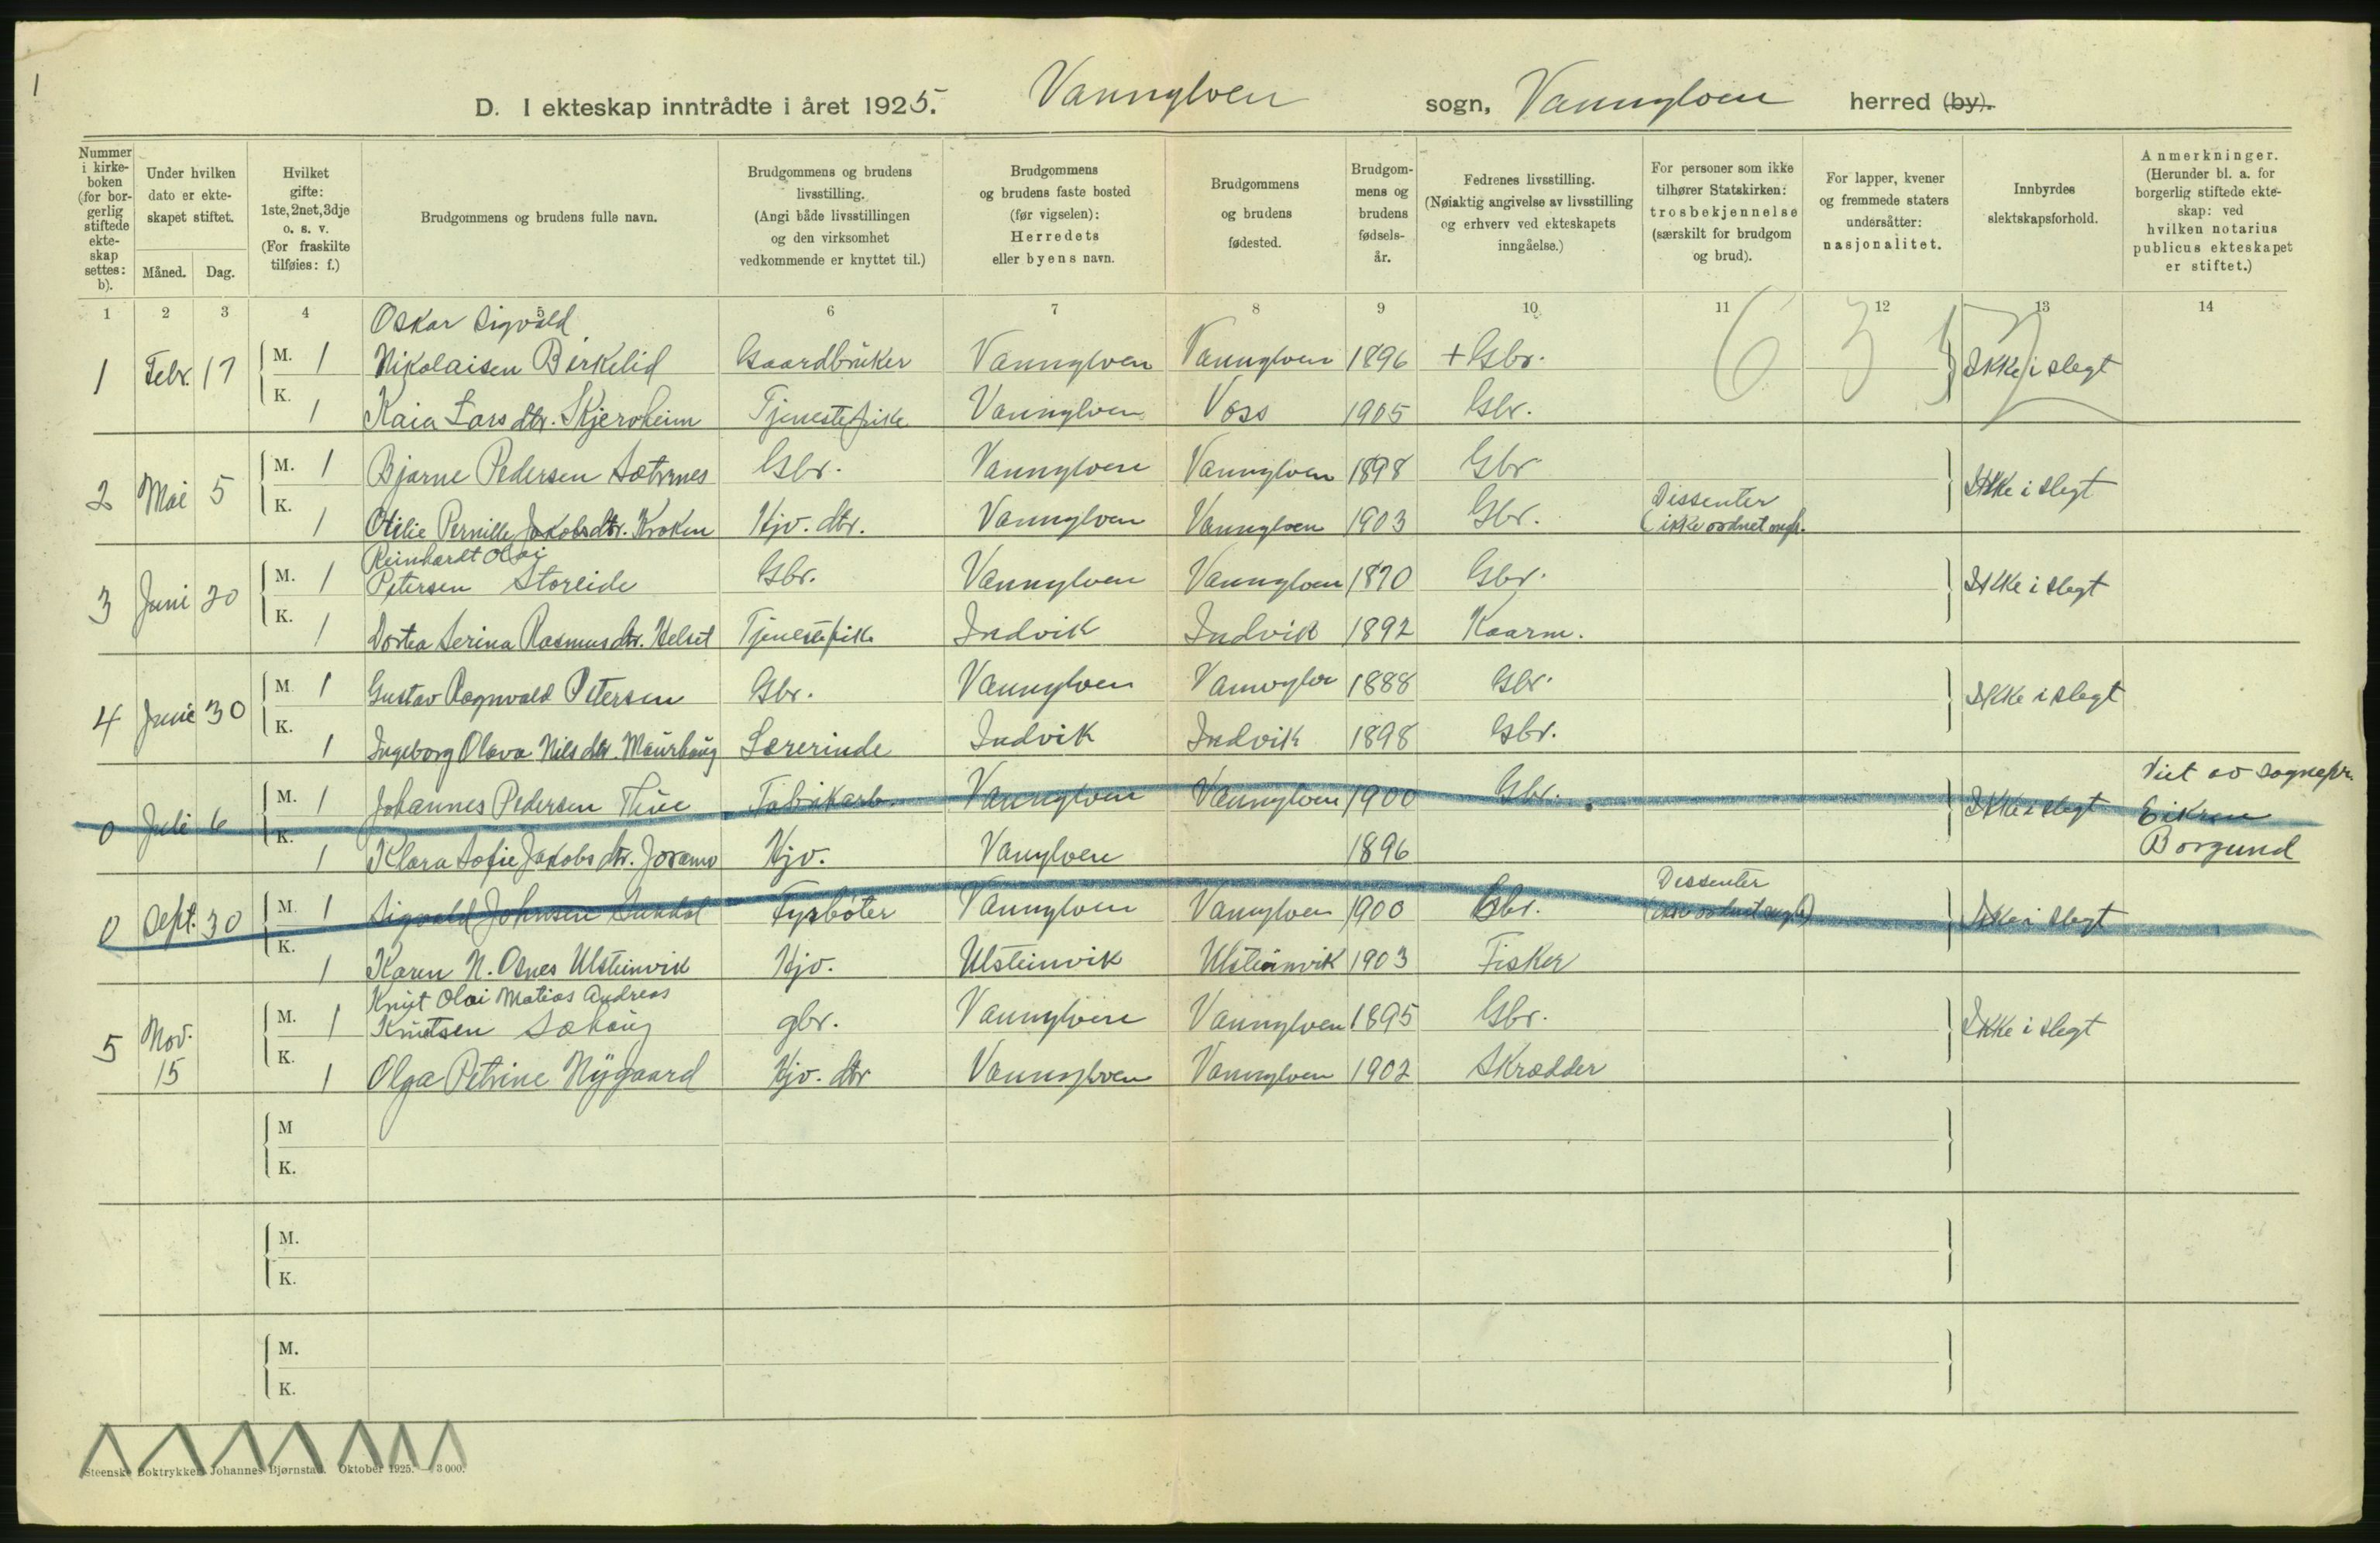 1
D. I ekteskap inntrådte i året 1925. Vannylven sogn, Vannylven herred (by).
Nummer i kirkeboken (for borgerlig stiftede ekteskap settes: b).
Under hvilken dato er ekteskapet stiftet.
Måned. Dag.
Hvilket gifte: 1ste, 2net, 3dje o. s. v. (For fraskilte tilføies: f.)
Brudgommens og brudens fulle navn.
Brudgommens og brudens livsstilling. (Angi både livsstillingen og den virksomhet vedkommende er knyttet til.)
Brudgommens og brudens faste bosted (før vigselen): Herredets eller byens navn.
Brudgommens og brudens fødested.
Brudgommens og brudens fødselsår.
Fedrenes livsstilling. (Nøiaktig angivelse av livsstilling og erhverv ved ekteskapets inngåelse.)
For personer som ikke tilhører Statskirken: trosbekjennelse (særskilt for brudgom og brud).
For lapper, kvener og fremmede staters undersåtter: nasjonalitet.
Innbyrdes slektskapsforhold.
Anmerkninger. (Herunder bl. a. for borgerlig stiftede ekteskap: ved hvilken notarius publicus ekteskapet er stiftet.)
1 2 3 4 5 6 7 8 9 10 11 12 13 14
Oskar Sigvald
1 Febr. 17 M. 1 Nikolaisen Birkelid Gaardbruker Vannylven Vannylven 1896 + Gbr. 6 3 Ikke i slegt
K. 1 Kaia Lars dtr. Skjerveheim Tjenestepike Vannylven Voss 1905 Gbr.
2 Mai 5 M. 1 Bjarne Pedersen Sætrnes Gbr. Vannylven Vannylven 1898 Gbr Ikke i slegt
K. 1 Otilie Pernille Jakobsdtr. Kroken Hjv. dtr. Vannylven Vannylven 1903 Gbr. Dissenter (ikke ordnet
Reinhardt Olai
3 Juni 20 M. 1 Petersen Storeide Gbr. Vannylven Vannylven 1870 Gbr. Ikke i slegt
K. 1 Dortea Serina Rasmusdtr. Helset Tjenestepike Indvik Indvik 1892 Kaarm.
4 Juni 30 M. 1 Gustav Ragnvald Petersen Gbr. Vannylven Vannylven 1888 Gbr. Ikke i slegt
K. 1 Ingeborg Olava Nils dtr. Maurhaug Lærerinde Indvik Indvik 1898 Gbr.
0 Juli 6 M. 1 Johannes Pedersen Thue Fabrikarb. Vannylven Vannylven 1900 Gbr. Ikke i slegt Viet av sognepr. Eikrem
K. 1 Klara Sofie Jakobs dtr. Joramo Hjv. Vanylven 1896 Borgund
0 Sept. 30 M. 1 Sigvald Johnsen Sundal Fyrbøter Vannylven Vannylven 1900 Gbr. Dissenter (ikke ordnet Ikke i slegt
K. 1 Karen N. Osnes Ulsteinvik Hjv. Ulsteinvik Ulsteinvik 1903 Fisker
Knut Olai Matias Andreas
5 Nov. 15 M. 1 Knutsen Sæhaug gbr. Vannylven Vannylven 1895 Gbr. Ikke i slegt
K. 1 Olga Petrine Nygaard Hjv. dtr Vannylven Vannylven 1902 Skrædder
M
K.
M.
K.
M.
K.
Steenske Boktrykkeri Johannes Bjørnstad. Oktober 1925. 3 000.